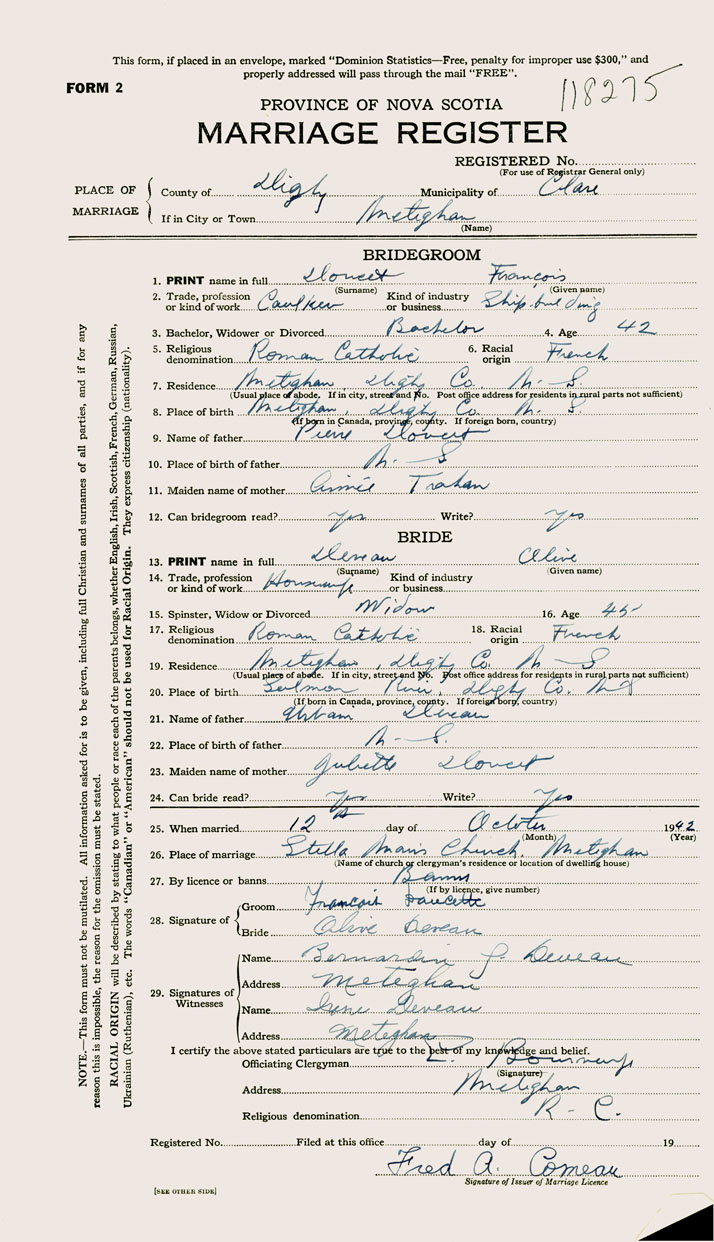 This form, if placed in an envelope, marked "Dominion Statistics—Free, penalty for improper use $300," and
properly addressed will pass through the mail "FREE".
FORM 2
118275
PROVINCE OF NOVA SCOTIA
MARRIAGE REGISTER
REGISTERED No.
(For use of Registrar General only)
PLACE OF MARRIAGE
County of Digby Municipality of Clare
If in City or Town Meteghan
(Name)
BRIDEGROOM
1. PRINT name in full Doucet François
(Surname) (Given name)
2. Trade, profession or kind of work Caulker Kind of industry or business Ship building
3. Bachelor, Widower or Divorced Bachelor 4. Age 42
5. Religious denomination Roman Catholic 6. Racial origin French
7. Residence Meteghan, Digby Co. N. S.
(Usual place of abode. If in city, street and No. Post office address for residents in rural parts not sufficient)
8. Place of birth Meteghan, Digby Co. N. S.
(If born in Canada, province, county. If foreign born, country)
9. Name of father Pierre Doucet
10. Place of birth of father N. S
11. Maiden name of mother Aimée Trahan
12. Can bridegroom read? Yes Write? Yes
BRIDE
13. PRINT name in full Deveau Olive
(Surname) (Given name)
14. Trade, profession or kind of work Housewife Kind of industry or business
15. Spinster, Widow or Divorced Widow 16. Age 45
17. Religious denomination Roman Catholic 18. Racial origin French
19. Residence Meteghan, Digby Co. N. S
(Usual place of abode. If in city, street and No. Post office address for residents in rural parts not sufficient)
20. Place of birth Salmon River, Digby Co. N S
(If born in Canada, province, county. If foreign born, country)
21. Name of father Urbain Deveau
22. Place of birth of father N. S.
23. Maiden name of mother Juliette Doucet
24. Can bride read? Yes Write? Yes
25. When married 12th day of October 1942
(Month) (Year)
26. Place of marriage Stella Maris Church, Meteghan
(Name of church or clergyman's residence or location of dwelling house)
27. By licence or banns Banns
(If by licence, give number)
28. Signature of
Groom François Doucette
Bride Olive Deveau
29. Signatures of Witnesses
Name Bernardin J. Deveau
Address Meteghan
Name Irene Deveau
Address Meteghan
I certify the above stated particulars are true to the best of my knowledge and belief.
Officiating Clergyman
(Signature)
Address Meteghan
Religious denomination R. C.
Registered No. Filed at this office day of 19
Fred A. Comeau
Signature of Issuer of Marriage Licence
[SEE OTHER SIDE]
NOTE.—This form must not be mutilated. All information asked for is to be given, including full Christian and surnames of all parties, and if for any
reason this is impossible, the reason for the omission must be stated.
RACIAL ORIGIN will be described by stating to what people or race each of the parents belongs, whether English, Irish, Scottish, French, German, Russian,
Ukrainian (Ruthenian), etc. The words "Canadian" or "American" should not be used for Racial Origin. They express citizenship (nationality).